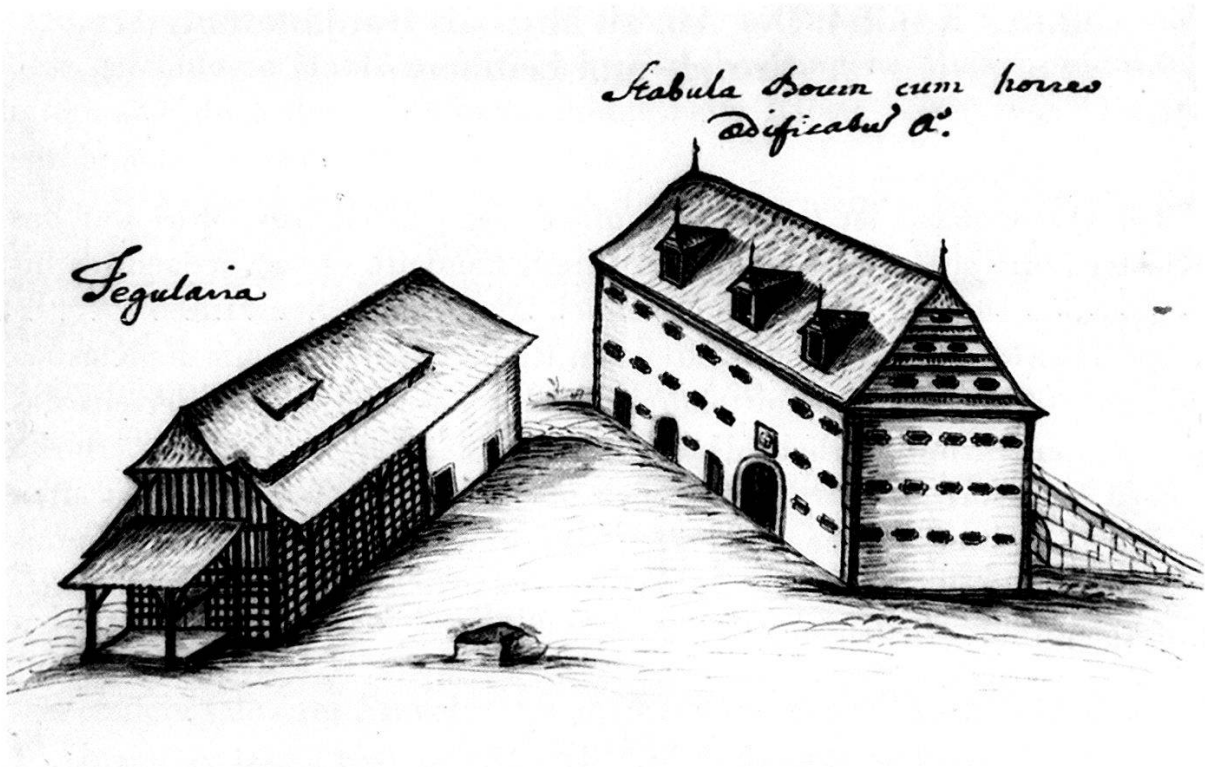 Stabula Boum cum horreo
ædificabũ Aº.
Tegularia